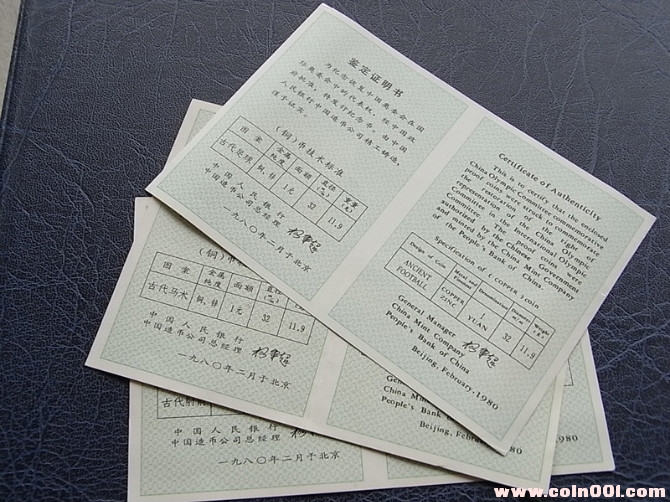 鉴定证明书
为纪念恢复中国奥委会在国
际奥委会中的代表权，经中国政
府批准，特发行纪念币。由中国
人民银行中国造币公司精工铸造，
谨予证实。
(铜)币技术标准
图案 金属纯度 面额 直径(㎜) 重量(g)
古代足球 铜、锌 1元 32 11.9
中国人民银行
中国造币公司总经理
一九八〇年二月于北京
Certificate of Authenticity
This is to certify that the enclosed
China Olympic Committee commemorative
proof coins were struck to commemorate
the restoration of the right of
representation of the China Olympic
Committee in the International Olympic
Committee. These proof coins were
authorized by the Chinese Government
and minted by the China Mint Company
of the People's Bank of China.
Specification of (COPPER) coin
Design of Coin Metal and Fineness Denomination Diameter m/m Weight (g)
ANCIANT FOOTBALL COPPER ZINC 1 YUAN 32 11.9
General Manager
China Mint Company
People's Bank of China
Beijing, February, 1980
(铜)币
图案 金属纯度 面额
古代马术 铜、锌 1元 32 11.9
中国人民银行
中国造币公司总经理
一九八〇年二月于北京
General
China Mint
People's Bank of
Beijing, February, 1980
古代射
中国人民银行
中国造币公司总经理
一九八〇年二月于北京
1980
www.coin001.com